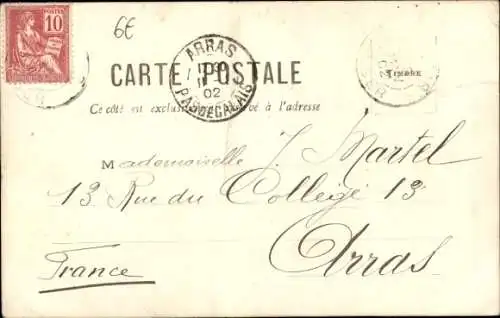 POSTES
10
6€
ARRAS
02
PAS DE CALAIS
CARTE POSTALE
TIMBRE
Ce côté est exclusivement réservé à l'adresse
Mademoiselle J. Martel
13 Rue du Collège 13
Arras
France